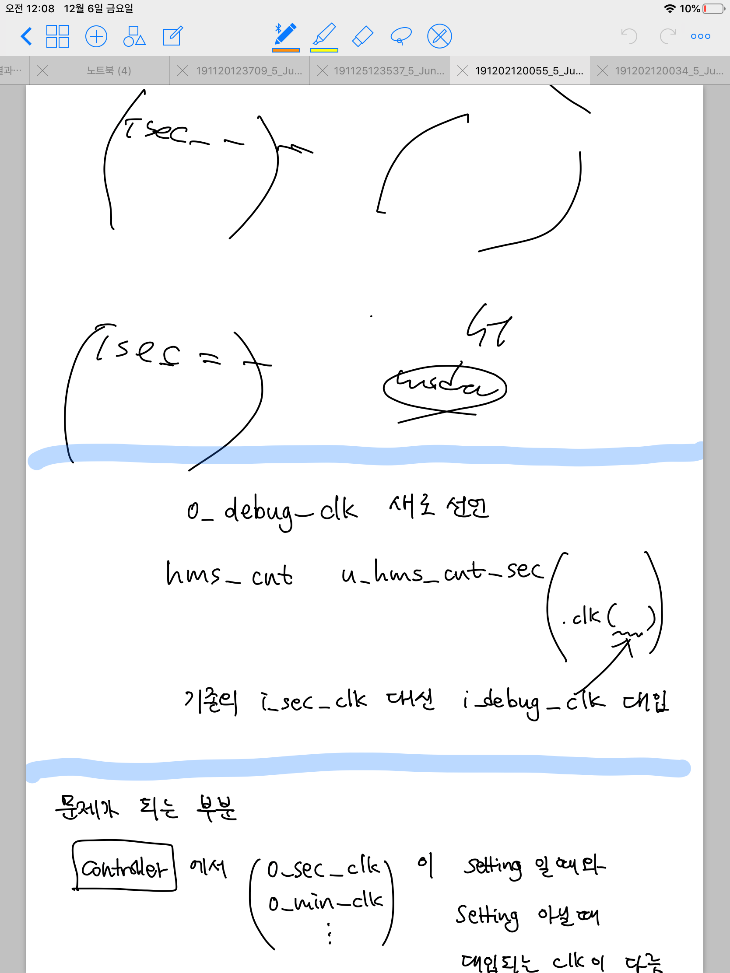 오전 12:08 12월 6일 금요일 10%
노트북 (4) 191120123709_5_Ju... 191125123537_5_Jun... 191202120055_5_Ju... 191202120034_5_Ju...
o_debug_clk 새로 선언
hms_cnt u_hms_cnt_sec
.clk( )
기존의 i_sec_clk 대신 i_debug_clk 대입
문제가 되는 부분
Controller 에서 o_sec_clk 이 setting 일 때와
o_min_clk setting 아닐 때
⋮
대입되는 clk이 다름